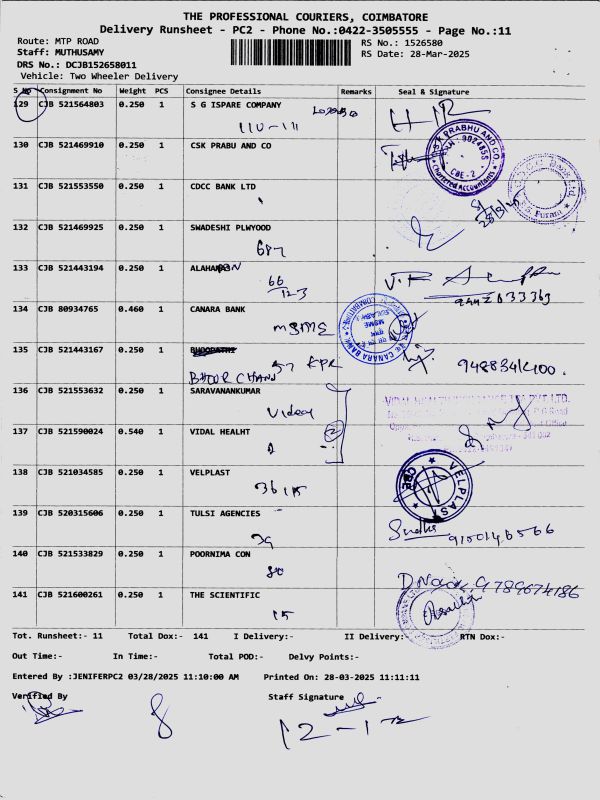 THE PROFESSIONAL COURIERS, COIMBATORE
Delivery Runsheet - PC2 - Phone No.:0422-3505555 - Page No.:11
Route: MTP ROAD
RS No.: 1526580
Staff: MUTHUSAMY
RS Date: 28-Mar-2025
DRS No.: DCJB152658011
Vehicle: Two Wheeler Delivery
S No Consignment No Weight PCS Consignee Details Remarks Seal & Signature
129 CJB 521564803 0.250 1 S G ISPARE COMPANY
110-111
130 CJB 521469910 0.250 1 CSK PRABU AND CO
S K PRABHU AND CO. Chartered Accountants CBE - 2
131 CJB 521553550 0.250 1 CDCC BANK LTD
28/3/25
132 CJB 521469925 0.250 1 SWADESHI PLWYOOD
687
133 CJB 521443194 0.250 1
66
123
9442633363
134 CJB 80934765 0.460 1 CANARA BANK
MSME
CANARA BANK MSME
135 CJB 521443167 0.250 1 BHOOPATHI
57 KPR
9488341400.
136 CJB 521553632 0.250 1 SARAVANANKUMAR
137 CJB 521590024 0.540 1 VIDAL HEALHT
2
138 CJB 521034585 0.250 1 VELPLAST
VELPLAST CBE
36 115
139 CJB 520315606 0.250 1 TULSI AGENCIES
Sudha 9150146566
140 CJB 521533829 0.250 1 POORNIMA CON
9789674186
141 CJB 521600261 0.250 1 THE SCIENTIFIC
15
Tot. Runsheet:- 11 Total Dox:- 141 I Delivery:- II Delivery:- RTN Dox:-
Out Time:- In Time:- Total POD:- Delvy Points:-
Entered By :JENIFERPC2 03/28/2025 11:10:00 AM Printed On: 28-03-2025 11:11:11
Verified By Staff Signature